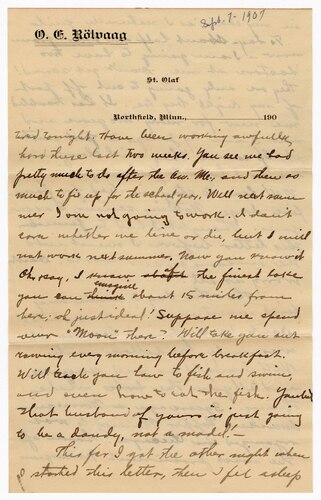 Sept. 7 - 1907
O. E. Rölvaag
St. Olaf
Northfield, Minn., 190
tired tonight. Have been working awfully
hard these last two weeks. You see we had
pretty much to do after the An. Me., and then so
much to fix up for the school year. Well next sum
mer I am not going to work. I don't
care whether we live or die, but I will
not work next summer, Now you know it
Oh, say, I know the finest lake
imagine
you can think about 15 miles from
here; oh just ideal! Suppose we spend
our "Moon" there? Will take you out
rowing every morning before breakfast.
Will teach you how to fish and swim,
and even how to eat the fish. You bet
that husband of yours is just going
to be a dandy, not a model! -
This far I got the other night when
I started this letter, then I fell asleep